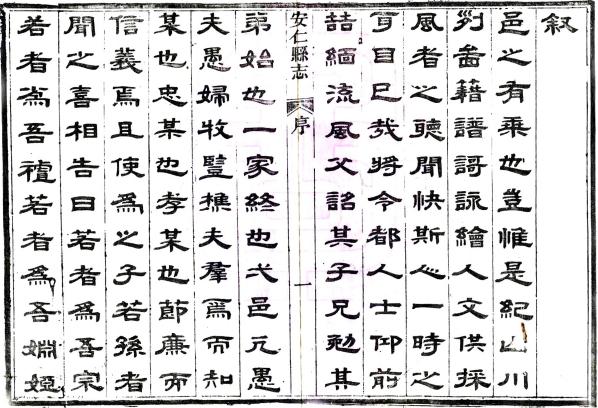 叙
邑之有乘也豈惟是紀山川
列啚籍譜謌詠繪人文供採
風者之聽聞快斯心一時之
耳目已哉將令都人士仰前
喆緬流風父詔其子兄勉其
安仁縣志 序 一
弟始也一家終也弌邑凢愚
夫愚婦牧豎樵夫羣焉而知
某也忠某也孝某也節廉而
信義焉且使為之子若孫者
聞之喜相告曰若者為吾宗
若者為吾若者為吾婣婭